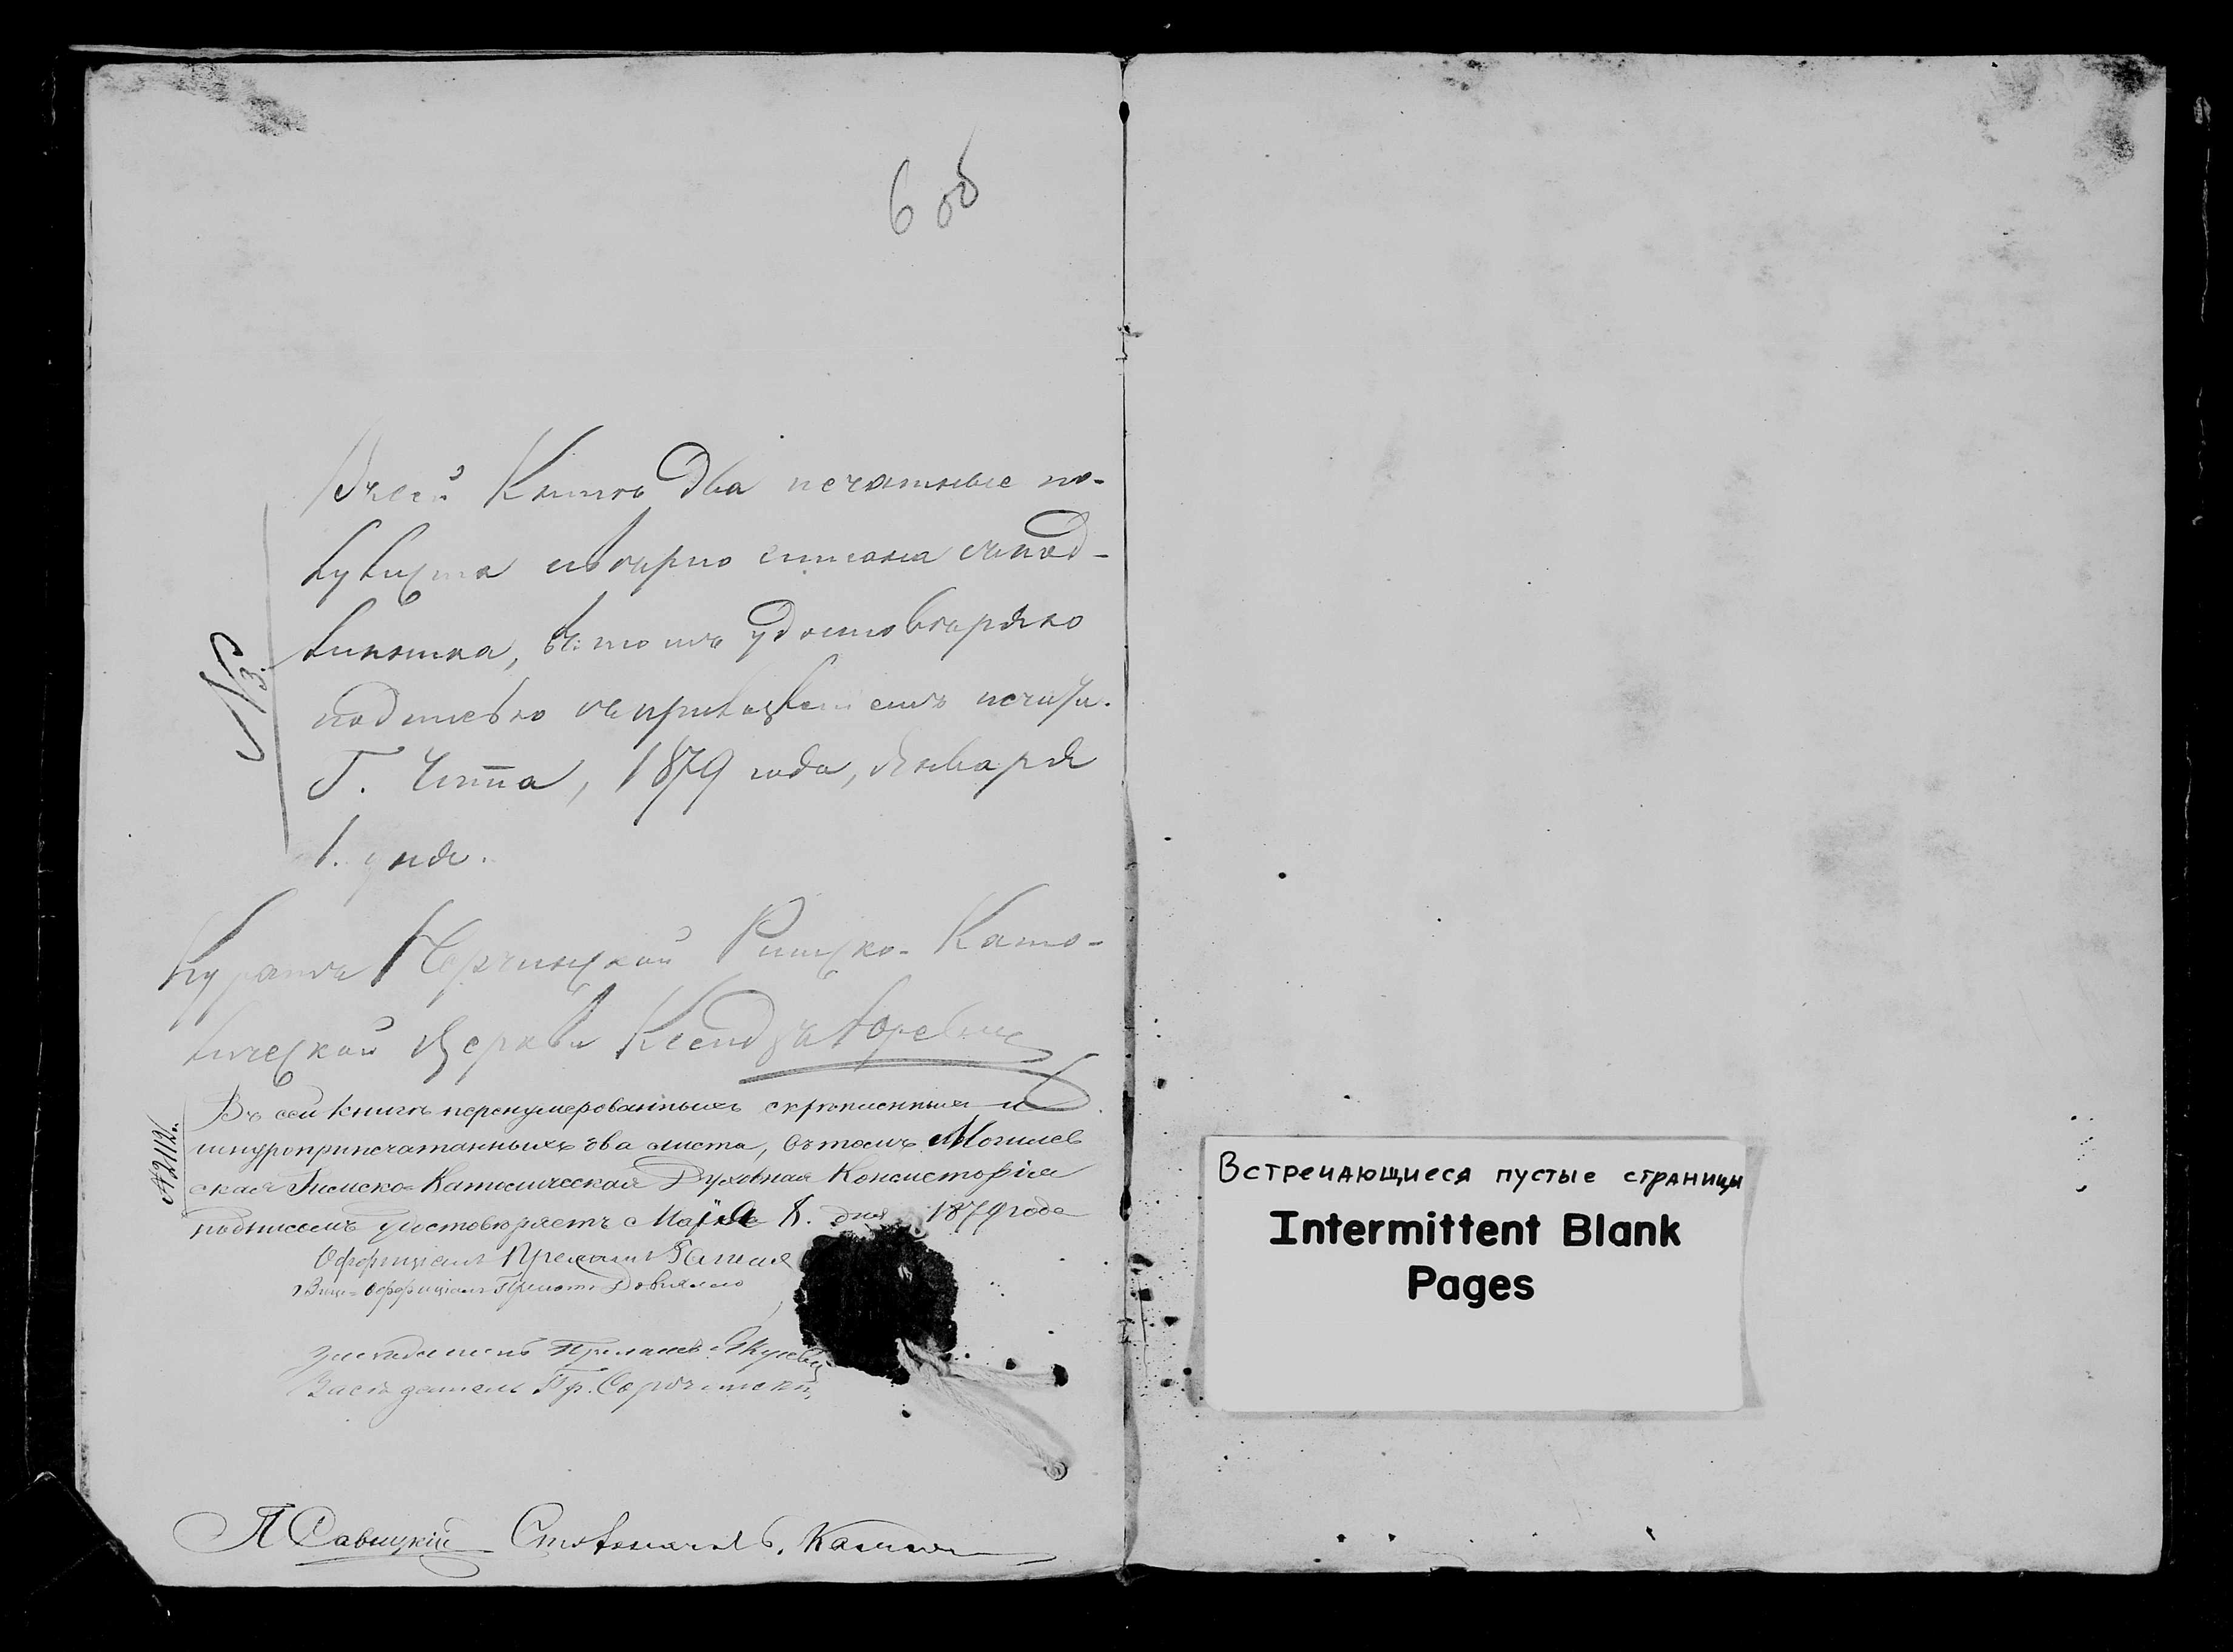 6 об
Въ сей Книгѣ два печатные по-
лулиста и вѣрно списана съ под-
линника, въ томъ удостовѣряю
подписью съ приложеніемъ печати.
Г. Чита, 1879 года, Января
1. дня.
№ 3.
Куратъ Нерчинской Римско-Като-
лической Церкви Ксендзъ
№ 2112.
Въ сей книгѣ перенумерованныхъ скрѣпленныхъ и
шнуроприпечатанныхъ два листа, въ томъ Могилев
ская Римско-Католическая Духовная Консисторія
подписомъ удостовѣряетъ Мая 8. дня 1879 года
Оффиціалъ Прелатъ
Вице-Оффиціалъ Прелатъ Довнялло
Засѣдатель Прелатъ
Засѣдатель Пр.
П Савицкій Столоначальб.
Встречающиеся пустые страницы
Intermittent Blank
Pages